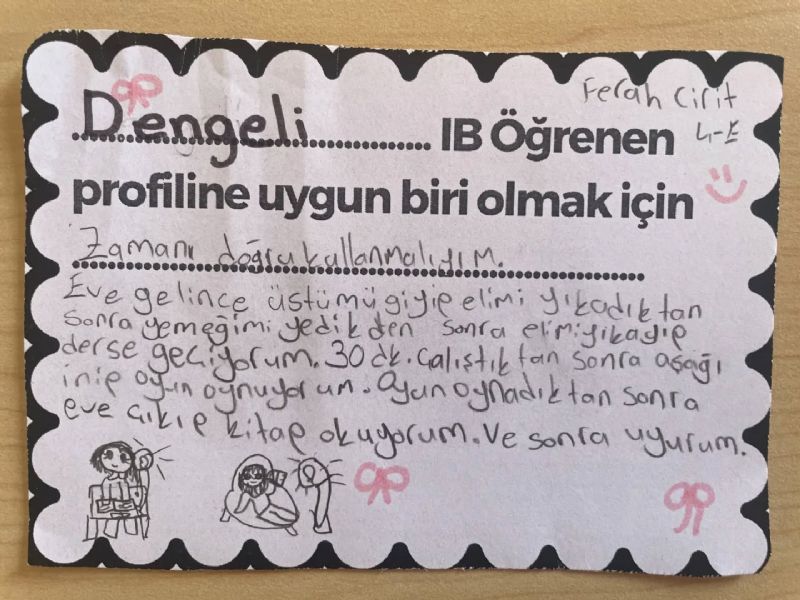 Ferah Cirit
4-E
Dengeli.............. IB Öğrenen
profiline uygun biri olmak için
Zamanı doğru kullanmalıyım.
Eve gelince üstümü giyip elimi yıkadıktan
sonra yemeğimi yedikden sonra elimi yıkayıp
derse geçiyorum. 30 dk. çalıştıktan sonra aşağı
inip oyun oynuyorum. Oyun oynadıktan sonra
eve çıkıp kitap okuyorum. Ve sonra uyurum.